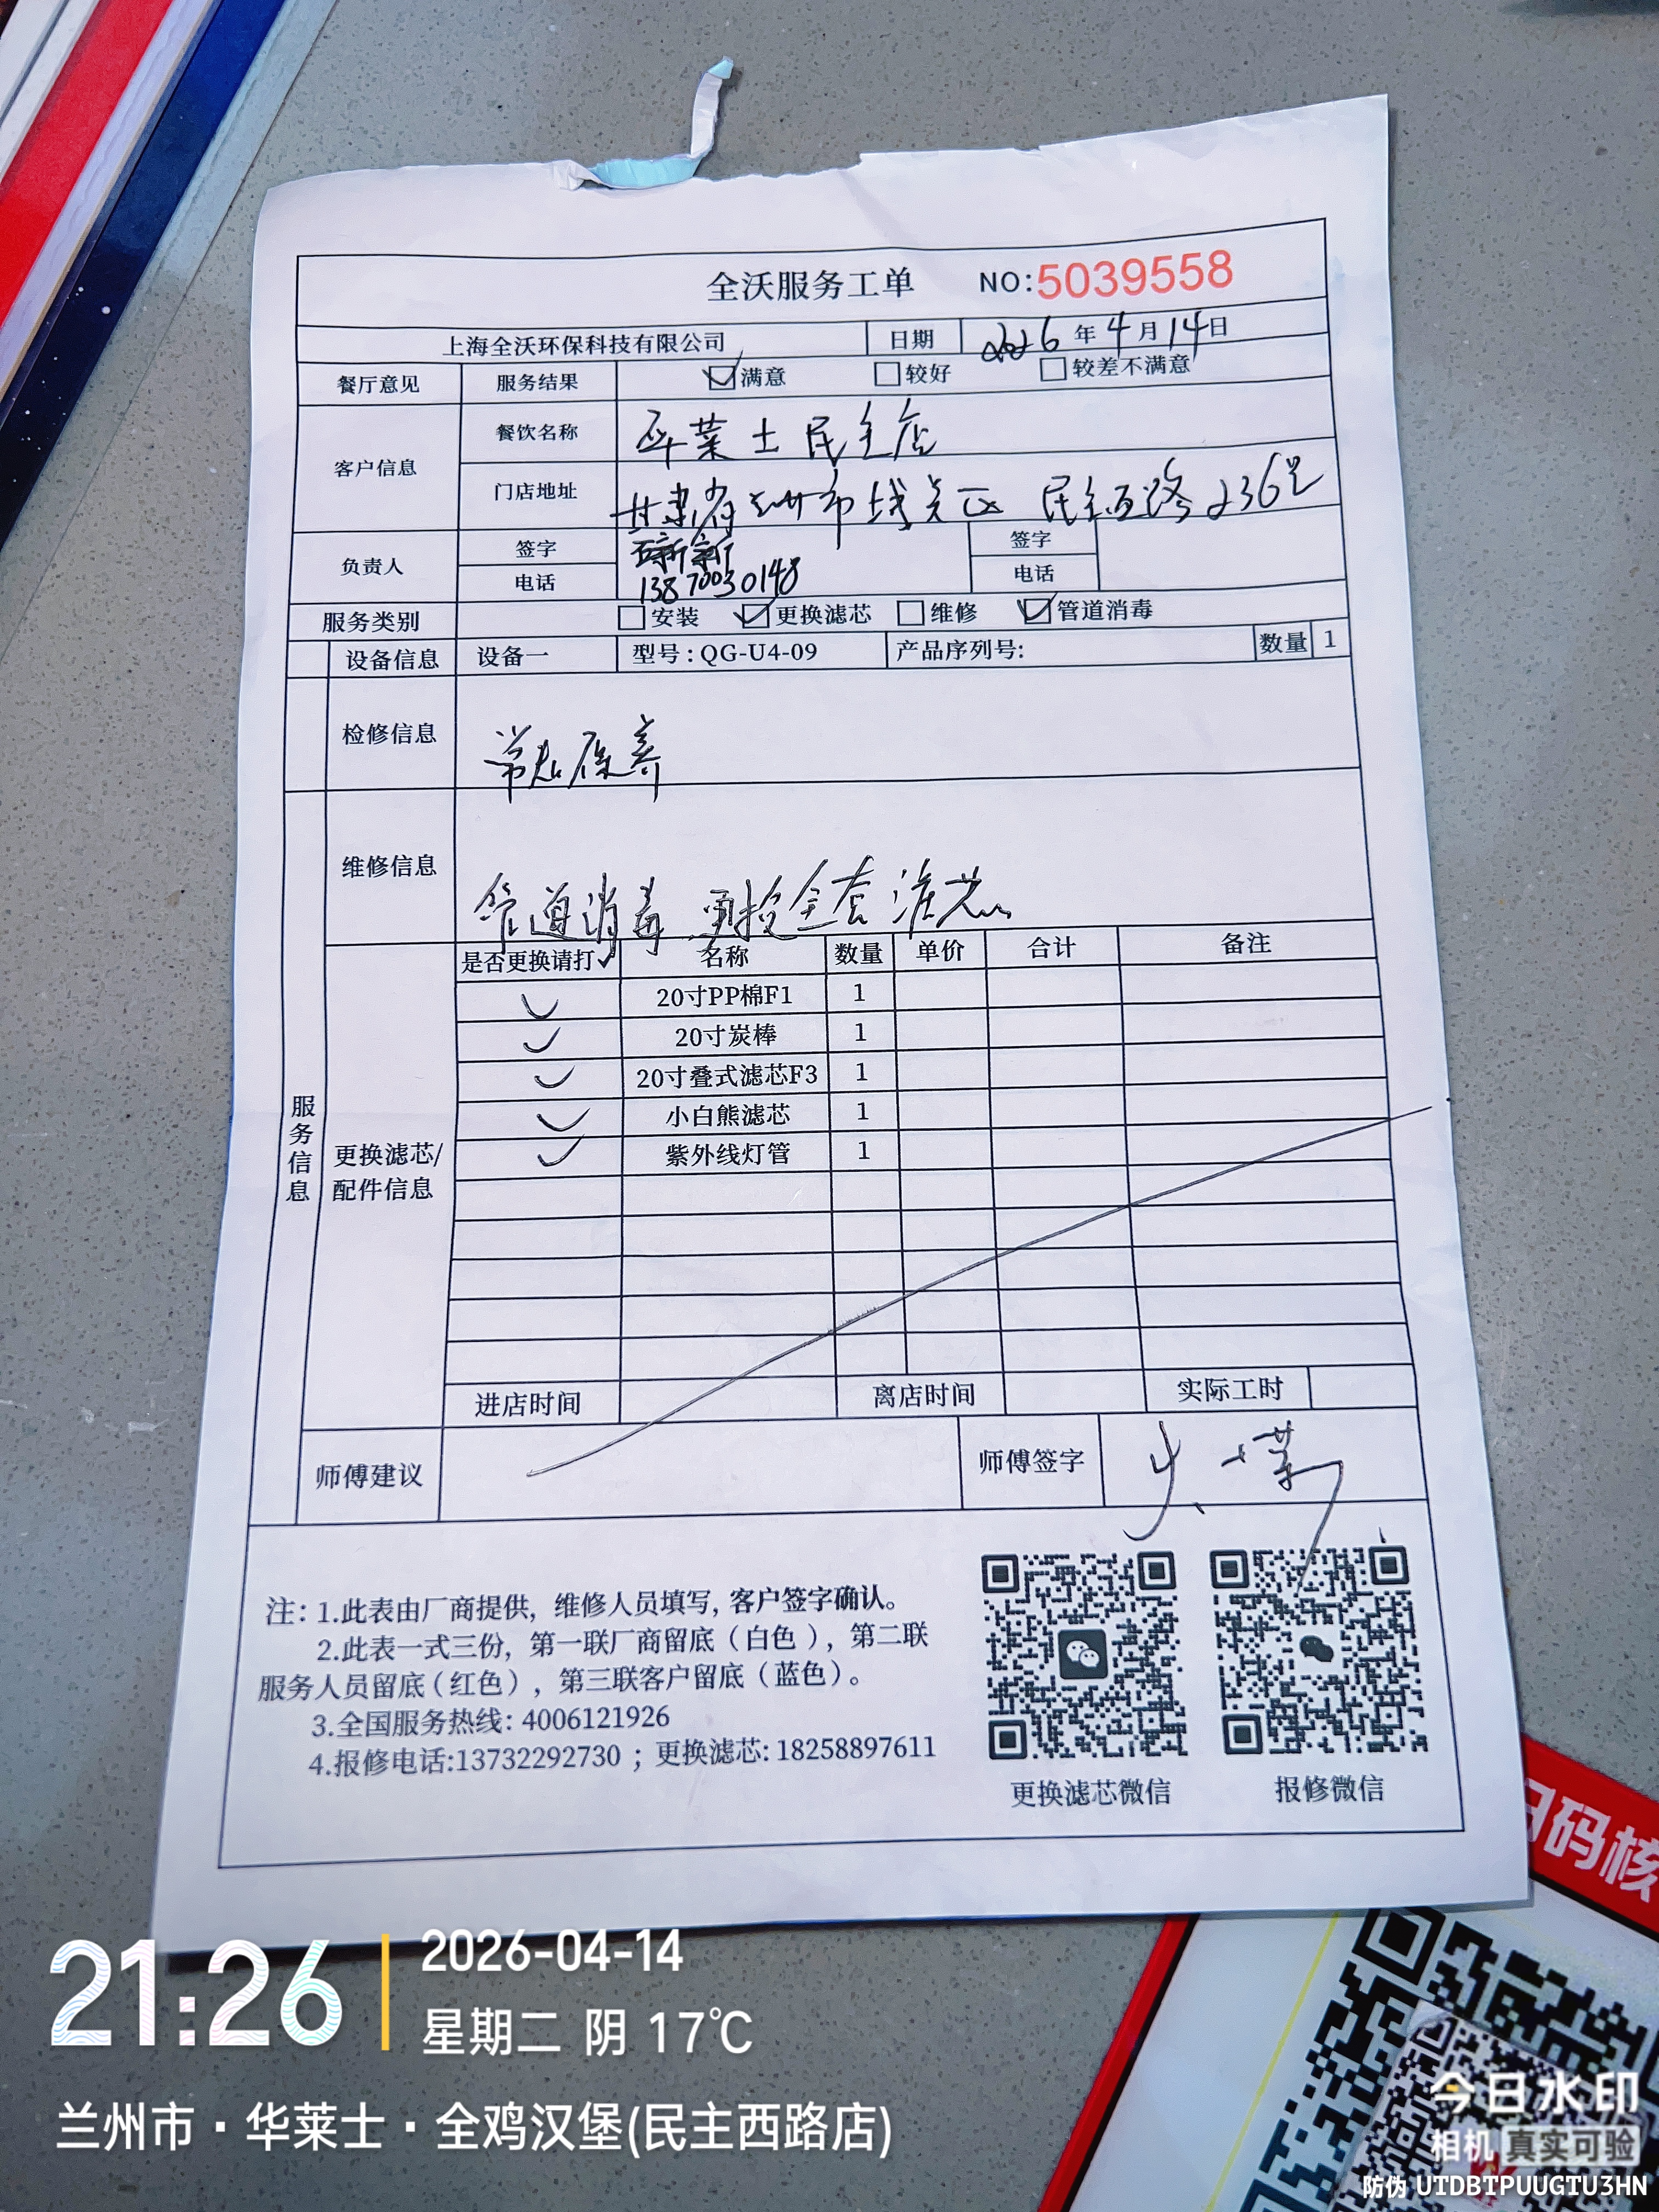 全沃服务工单 NO:5039558
上海全沃环保科技有限公司 日期 2026年4月14日
餐厅意见 服务结果 满意 较好 较差不满意
客户信息 餐饮名称 华莱士民主店
门店地址 甘肃省兰州市城关区 民主西路236号
负责人 签字 签字
电话 13870030148 电话
服务类别 安装 更换滤芯 维修 管道消毒
设备信息 设备一 型号:QG-U4-09 产品序列号: 数量 1
检修信息 常规保养
维修信息 管道消毒 更换全套滤芯
服务信息
更换滤芯/配件信息
是否更换请打✓ 名称 数量 单价 合计 备注
✓ 20寸PP棉F1 1
✓ 20寸炭棒 1
✓ 20寸叠式滤芯F3 1
✓ 小白熊滤芯 1
✓ 紫外线灯管 1
进店时间 离店时间 实际工时
师傅建议 师傅签字
注: 1.此表由厂商提供, 维修人员填写, 客户签字确认。
2.此表一式三份, 第一联厂商留底(白色), 第二联
服务人员留底(红色), 第三联客户留底(蓝色)。
3.全国服务热线: 4006121926
4.报修电话:13732292730 ; 更换滤芯: 18258897611
更换滤芯微信 报修微信
扫码核
21:26
2026-04-14
星期二 阴 17℃
兰州市·华莱士·全鸡汉堡(民主西路店)
今日水印
相机 真实可验
防伪 UTDBTPUUGTU3HN